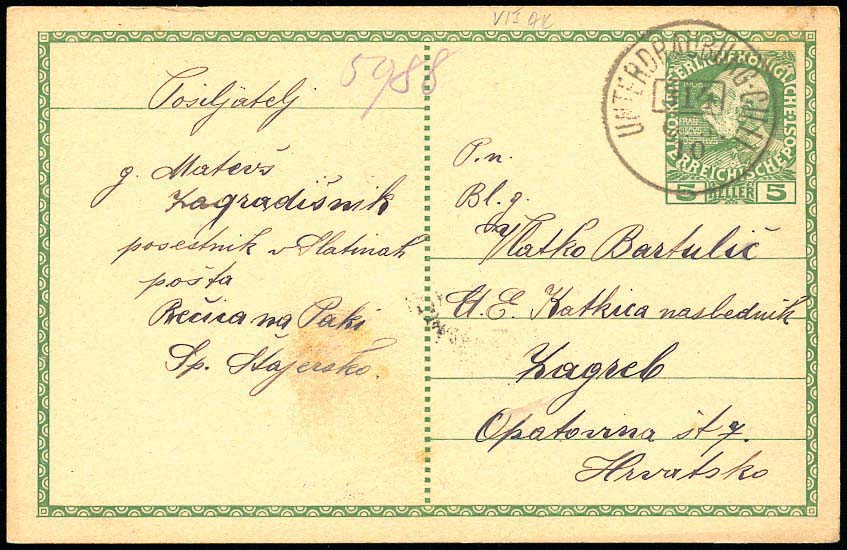 VIJ GK
5988
Pošiljatelj
g. Matevž
Zagradišnik
posestnik v Slatinah
pošta
Rečica na Paki
Sp. Štajersko.
UNTERDRAUBURG-CILLI
10
KAISERLICHE KÖNIGLICHE ÖSTERREICHISCHE POST
5 HELLER 5
P.n.
Bl. g.
Vlatko Bartulić
U. E. Katkica naslednik
Zagreb
Opatovina št 7.
Hrvatsko